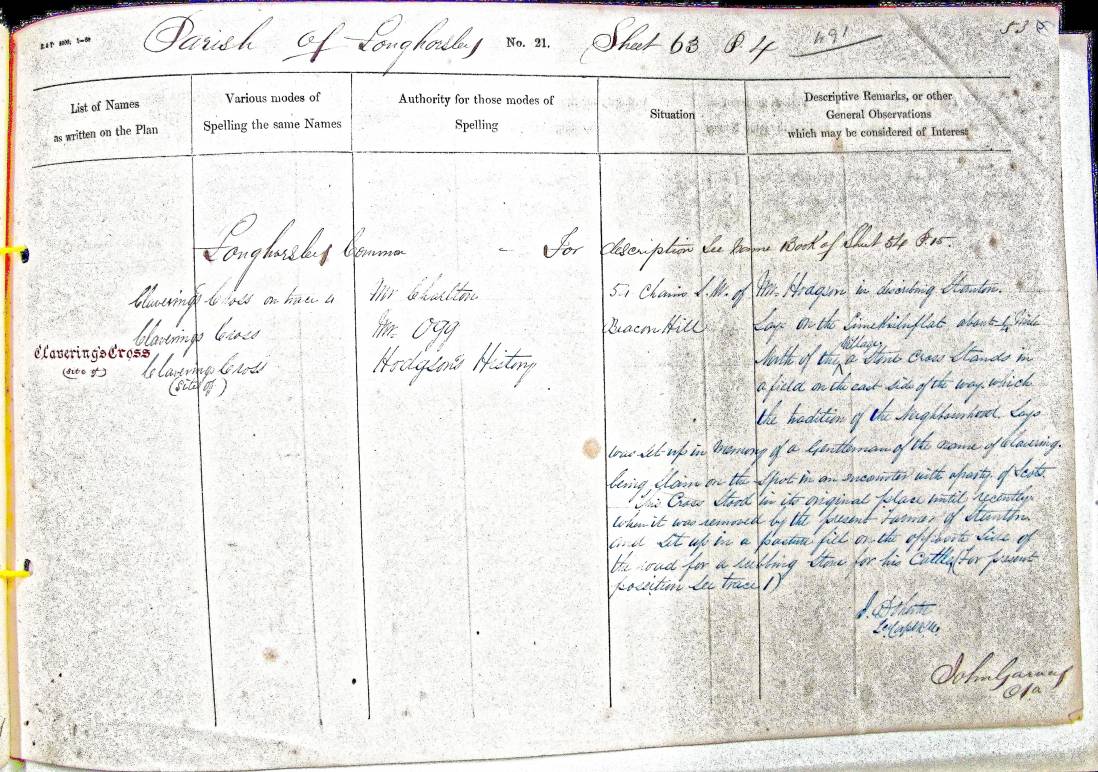 Parish of Longhorsley No. 21. Sheet 63 P. 4 491 535
List of Names
as written on the Plan
Various modes of
Spelling the same Names
Authority for those modes of
Spelling
Situation
Descriptive Remarks, or other
General Observations
which may be considered of Interest
Longhorsley Common - For description See Name Book of Sheet 54 P 15.
Clavering's Cross
(Site of)
Claverings Cross on trace 4
Claverings Cross
Claverings Cross
(Site of)
Mr Charlton
Mr. Ogg
Hodgson's History
Chains S.W. of
Beacon Hill
Mr. Hodgson in describing Stanton.
Says on the Limekilnflat about
North of the Village a Stone Cross Stands in
a field on the east side of the way. which
the tradition of the Neighbourhood Says
was set up in Memory of a Gentleman of the name of Clavering.
being slain on the Spot in an encounter with a party of Scots.
This Cross Stood in its original place until recently
when it was removed by the present Farmer of Stanton
and set up in a pasture field on the opposite Side of
the road for a rubbing Stone for his Cattle (For present
position See trace 1)
John Garvey